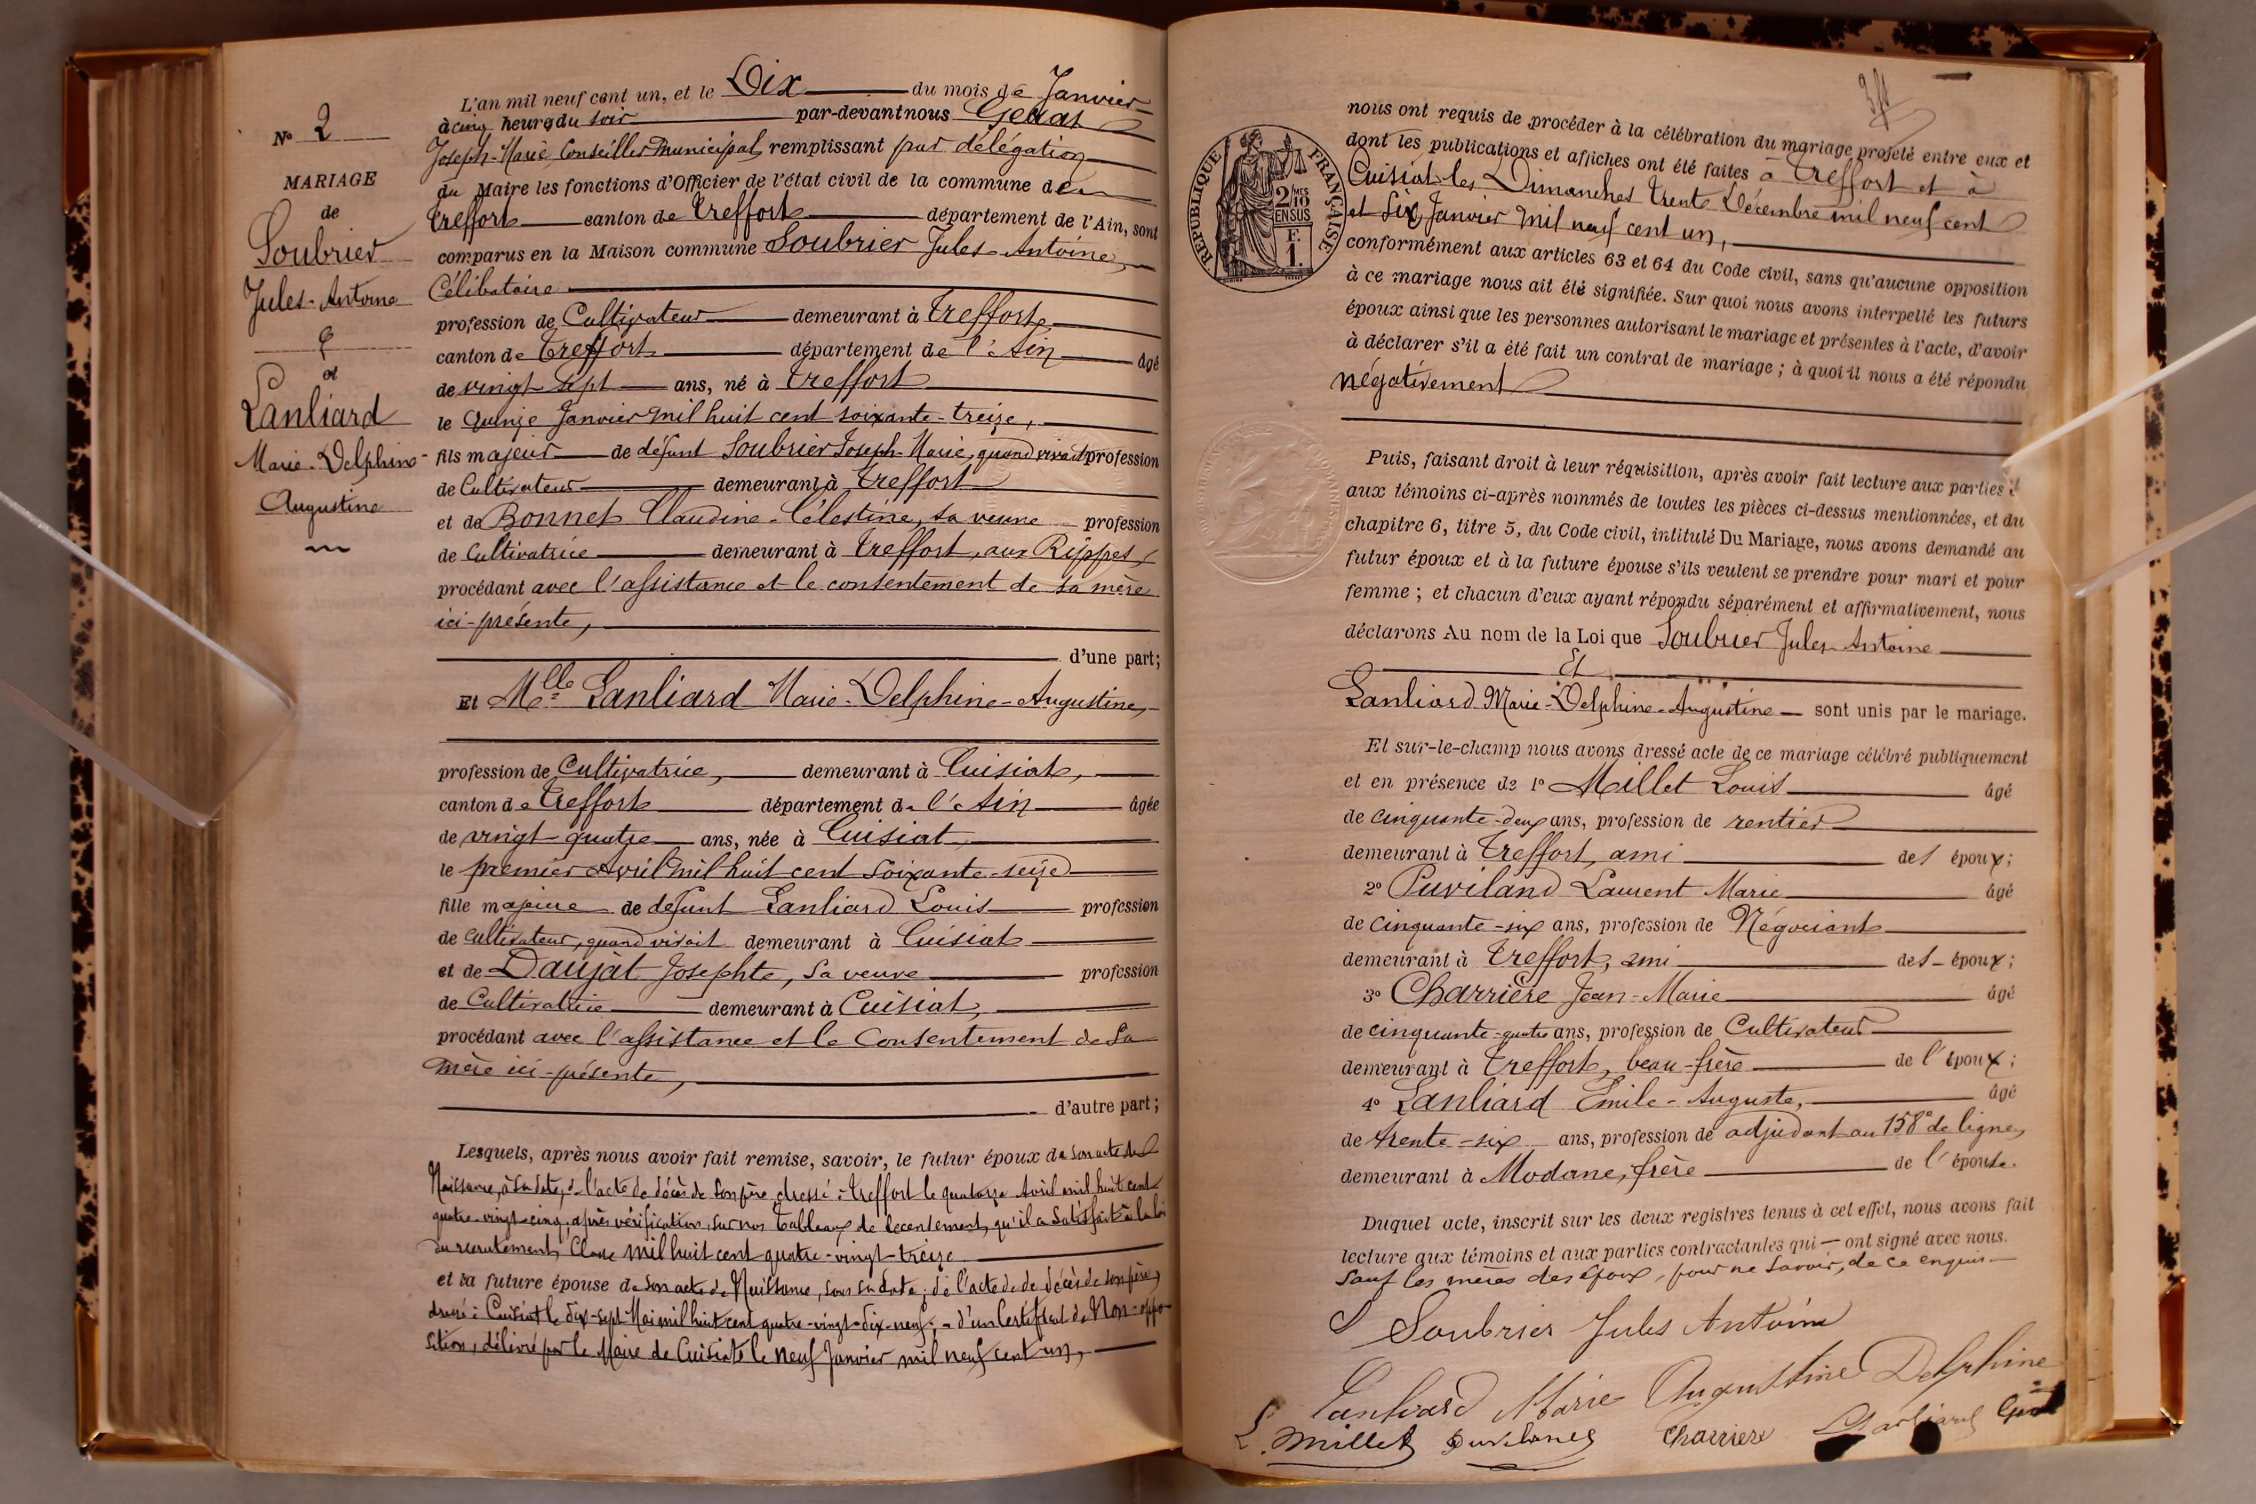 N° 2
MARIAGE
de
Soubrier
Jules-Antoine
et
Lanliard
Marie-Delphine-
Augustine
L'an mil neuf cent un, et le Dix du mois de Janvier
à cinq heures du soir par-devant nous
Joseph-Marie Conseiller municipal remplissant par délégation
du Maire les fonctions d'Officier de l'état civil de la commune de
Treffort canton de Treffort département de l'Ain, sont
comparus en la Maison commune Soubrier Jules-Antoine,
Célibataire
profession de Cultivateur demeurant à Treffort,
canton de Treffort département de l'Ain âgé
de vingt-sept ans, né à Treffort
le Quinze Janvier mil huit cent soixante-treize,
fils majeur de défunt Soubrier Joseph-Marie, quand vivait profession
de Cultivateur demeurant à Treffort
et de Bonnet Claudine-Célestine, sa veuve profession
de Cultivatrice demeurant à Treffort, aux Rippes,
procédant avec l'assistance et le consentement de sa mère
ici-présente,
d'une part;
Et Mlle Lanliard Marie-Delphine-Augustine,
profession de Cultivatrice, demeurant à Cuisiat,
canton de Treffort département de l'Ain âgée
de vingt-quatre ans, née à Cuisiat,
le premier Avril mil huit cent soixante-seize
fille majeure de défunt Lanliard Louis profession
de cultivateur, quand vivait demeurant à Cuisiat
et de Daujat Josephte, sa veuve profession
de Cultivatrice demeurant à Cuisiat,
procédant avec l'assistance et le Consentement de sa
mère ici-présente,
d'autre part;
Lesquels, après nous avoir fait remise, savoir, le futur époux de son acte de
Naissance, à sa date, de l'acte de décès de son père dressé à Treffort le quatorze Avril mil huit cent
quatre-vingt-cinq, après vérification, sur nos tableaux de recensement, qu'il a satisfait à la loi
du recrutement, Classe mil huit cent quatre-vingt-treize
et la future épouse de son acte de Naissance, sous sa date; de l'acte de de décès de son père,
dressé à Cuisiat le dix-sept Mai mil huit cent quatre-vingt-dix-neuf; d'un Certificat de Non-oppo-
sition, délivré par le Maire de Cuisiat le neuf Janvier mil neuf cent un,
RÉPUBLIQUE FRANÇAISE
2/10 MES
EN SUS
F.
1.
nous ont requis de procéder à la célébration du mariage projeté entre eux et
dont les publications et affiches ont été faites à Treffort et à
Cuisiat les Dimanches trente Décembre mil neuf cent
et Six Janvier mil neuf cent un,
conformément aux articles 63 et 64 du Code civil, sans qu'aucune opposition
à ce mariage nous ait été signifiée. Sur quoi nous avons interpellé les futurs
époux ainsi que les personnes autorisant le mariage et présentes à l'acte, d'avoir
à déclarer s'il a été fait un contrat de mariage; à quoi il nous a été répondu
négativement
Puis, faisant droit à leur réquisition, après avoir fait lecture aux parties
aux témoins ci-après nommés de toutes les pièces ci-dessus mentionnées, et du
chapitre 6, titre 5, du Code civil, intitulé Du Mariage, nous avons demandé au
futur époux et à la future épouse s'ils veulent se prendre pour mari et pour
femme; et chacun d'eux ayant répondu séparément et affirmativement, nous
déclarons Au nom de la Loi que Soubrier Jules-Antoine
Et
Lanliard Marie-Delphine-Augustine sont unis par le mariage.
Et sur-le-champ nous avons dressé acte de ce mariage célébré publiquement
et en présence de 1° Millet Louis âgé
de cinquante-deux ans, profession de rentier
demeurant à Treffort, ami des époux;
2° Puviland Laurent Marie âgé
de cinquante-six ans, profession de Négociant
demeurant à Treffort, ami des époux;
3° Charrière Jean-Marie âgé
de cinquante-quatre ans, profession de Cultivateur
demeurant à Treffort, beau-frère de l'époux;
4° Lanliard Emile-Auguste, âgé
de trente-six ans, profession de adjudant au 158e de ligne,
demeurant à Modane, frère de l'épouse.
Duquel acte, inscrit sur les deux registres tenus à cet effet, nous avons fait
lecture aux témoins et aux parties contractantes qui ont signé avec nous.
Sauf les mères des époux, pour ne savoir, de ce enquis
Soubrier Jules Antoine
Lanliard Marie Augustine Delphine
L. Millet Puvilland Charriere Lanliard